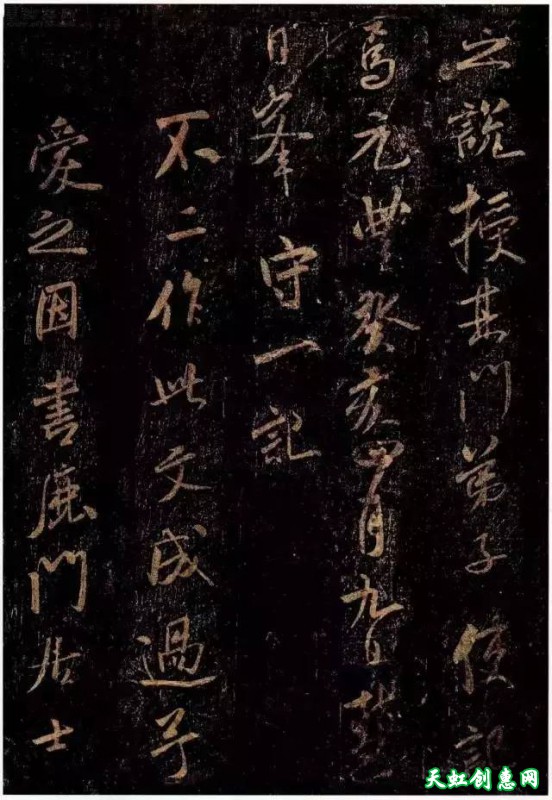 之說授其門弟子使記
焉元豐癸亥四月九日慧
日峯守一記
不二作此文成過予
愛之因書鹿門居士
天虹创惠网